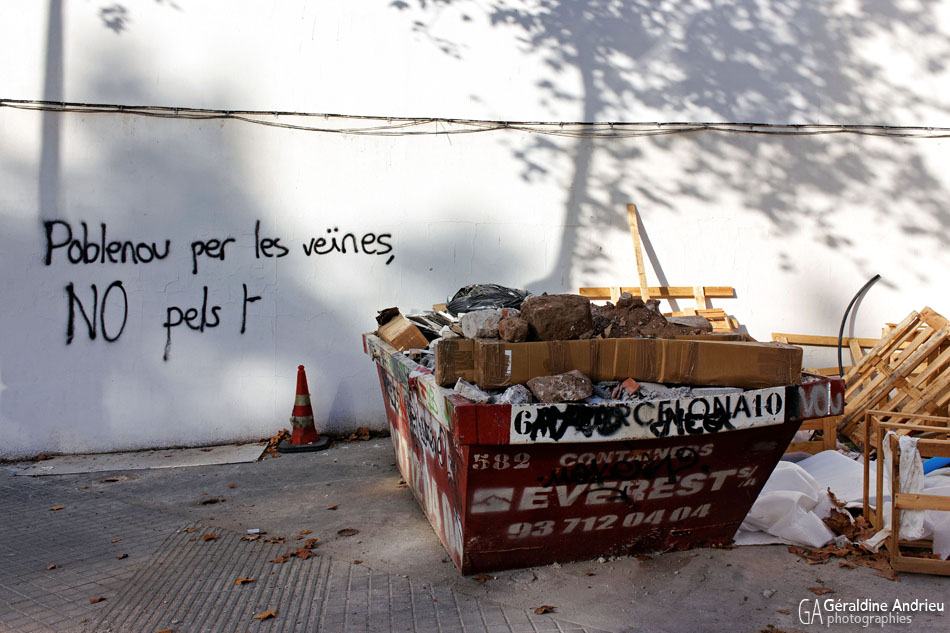 Poblenou per les veïnes,
NO pels t
BARCELONA 10
582 CONTAINERS
EVEREST S/A
93 712 04 04
GA Géraldine Andrieu
photographies